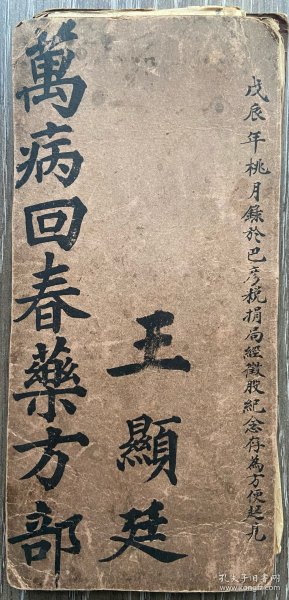 戊辰年桃月錄於巴彥稅捐局經徵股紀念存為方便起見
王顯廷
萬病回春藥方部
孔夫子旧书网
www.kongfz.com